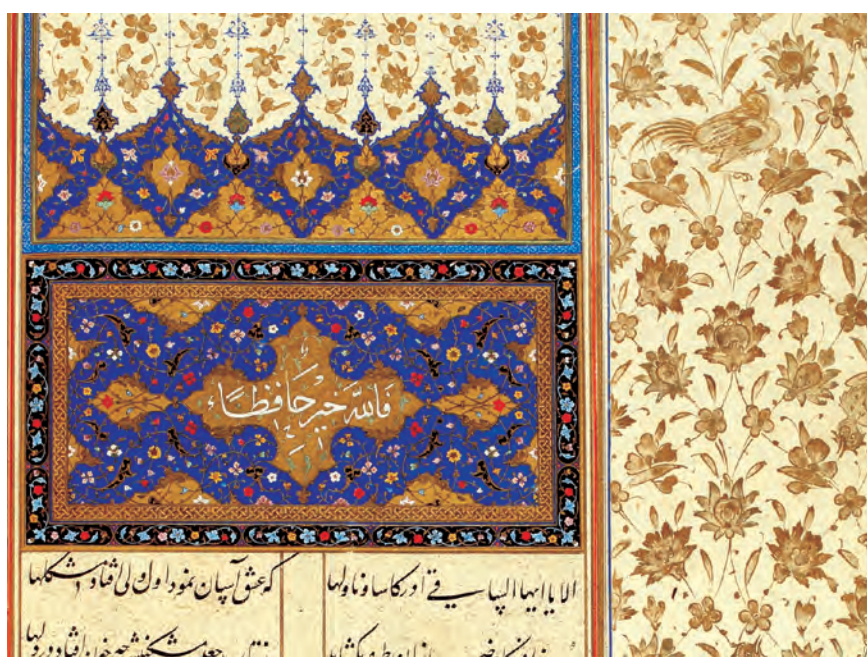 فالله خیر حافظاء
الا یا ایها الساقی ادر کاسا و ناولها که عشق آسان نمود اول ولی افتاد مشکلها